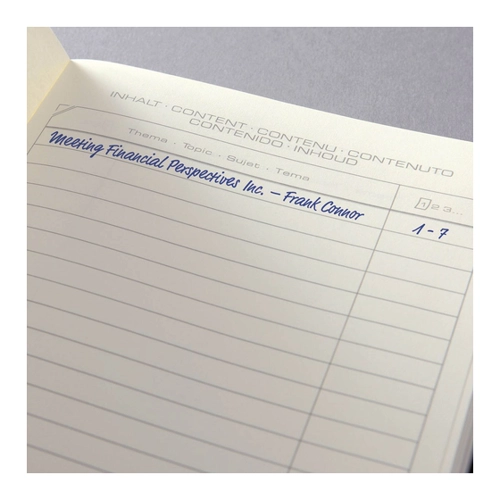 INHALT · CONTENT · CONTENU · CONTENUTO
CONTENIDO · INHOUD
Thema · Topic · Sujet · Tema
1 2 3...
Meeting Financial Perspectives Inc. – Frank Connor
1 - 7